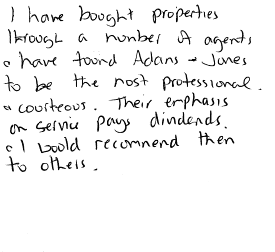 I have bought properties
through a number of agents
& have found Adans + Jones
to be the most professional
& courteous. Their emphasis
on service pays dividends.
& I would recommend them
to others.